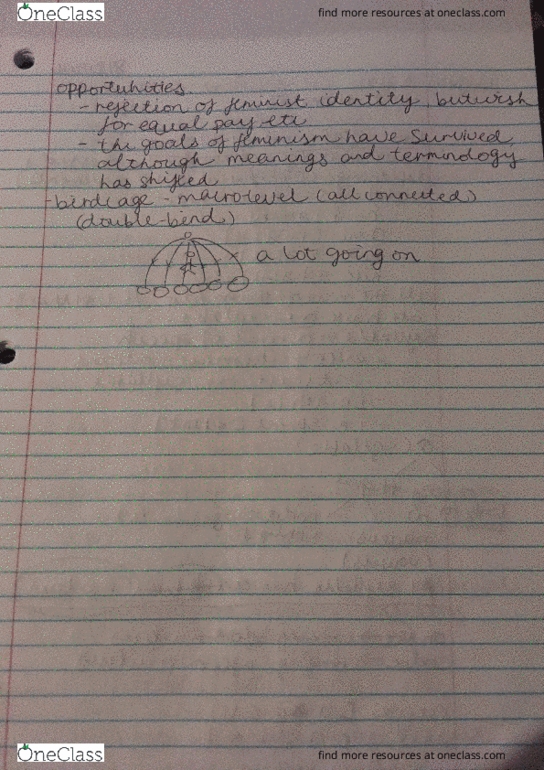 OneClass
find more resources at oneclass.com
opportunities
- rejection of feminist identity, but wish
for equal pay etc
- the goals of feminism have survived,
although meanings and terminology
has shifted
- birdcage - macrolevel (all connected)
(double-bend)
a lot going on
OneClass
find more resources at oneclass.com